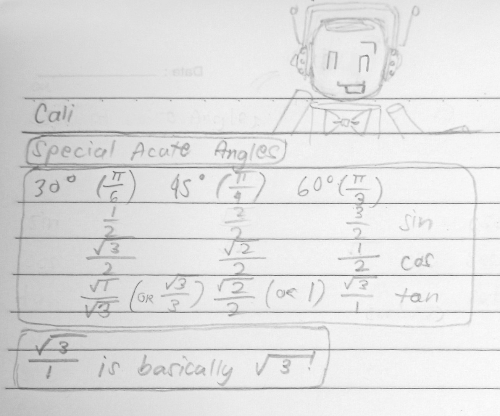 Cali
Special Acute Angles
30° (π/6) 45° (π/4) 60° (π/3)
1/2 2/2 3/2 sin
√3/2 √2/2 1/2 cos
√1/√3 (OR √3/3) √2/2 (or 1) √3/1 tan
√3/1 is basically √3!